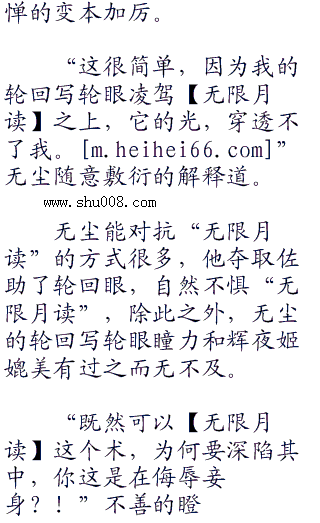 惮的变本加厉。
“这很简单，因为我的
轮回写轮眼凌驾【无限月
读】之上，它的光，穿透不
了我。[m.heihei66.com]”
无尘随意敷衍的解释道。
www.shu008.com
无尘能对抗“无限月
读”的方式很多，他夺取佐
助了轮回眼，自然不惧“无
限月读”，除此之外，无尘
的轮回写轮眼瞳力和辉夜姬
媲美有过之而无不及。
“既然可以【无限月
读】这个术，为何要深陷其
中，你这是在侮辱妾
身？！”不善的瞪